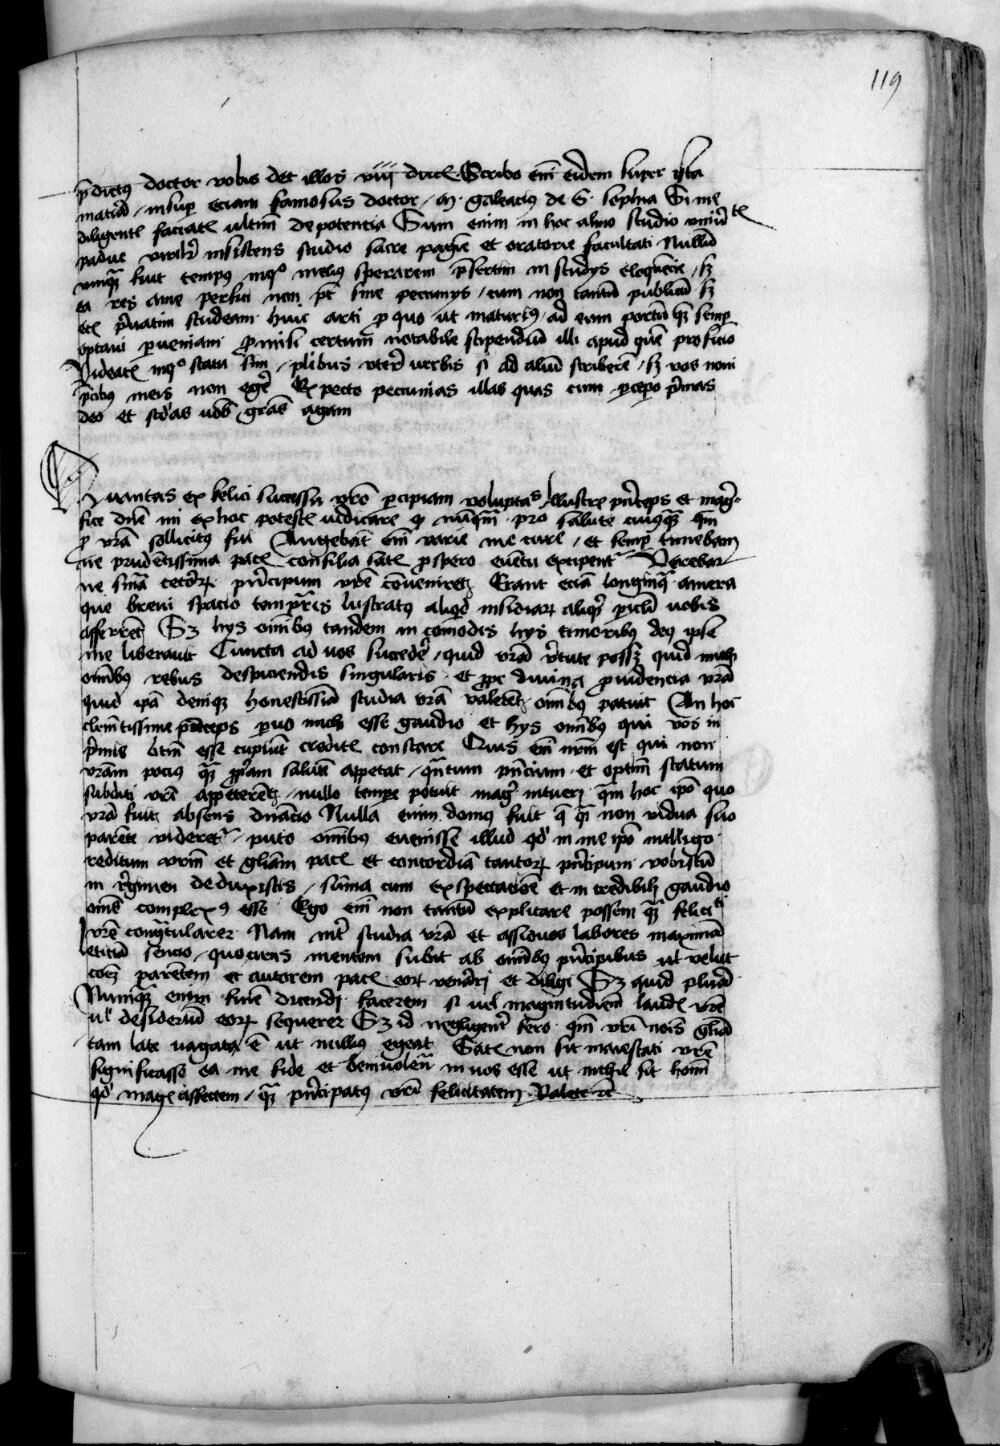 119
p̄dictus doctor vobis det illos viij duc. Scribo em̄ eidem super ista
matia, insup eciam famosus doctor, m. galeacius de S. sophia Si me
diligent faciat ultim de potencia Sum enim in hoc almo studio univt
padue insistens studio sacre pagīe et oratorie facultati Nullū
unqȝ fuit tempus in qo melius sperarem p̄sertim in studys eloquēcie, sȝ
ea res ame perfici non pt̄ sine pecunys, cum non tantū publicū sȝ
eciā p̄vatim studeam huic arti pro quo ut maturius ad eum portū quē semp
optavi perveniam promisi certum notabile stipendiū illi apud quē proficio
Videatꝭ in qo statu sim, plibus uterer verbis si ad aliū scriberē, sȝ vos novi
p̄cibus meis non egē Expecto pecunias illas quas cum percepo p̄mas
deo et scd̄as vob gr̄as agam
Quantas ex felici successu vr̄o percipiam voluptas Illustris pn̄ceps et mag
fice dn̄e mi ex hoc potestꝭ iudicare qꝫ nūqȝ pro salute cuiusqȝ qm̄
pro vr̄a sollicitus fui Augebāt em̄ varie me cure, et semp timebam
ne prudētissima pacꝭ consilia satꝭ prospero evētu exciperent Verebar
ne sn̄ia ceterorȝ principum vr̄e cōveniretȝ Erant eciā longinqȝ itinera
que brevi spacio temporis lustratus aliqd insidiarȝ aliqd pericli vobis
afferret Sȝ hys om̄ibus tandem incomodis hys timoribus deus ipse
me liberavit Cuncta ad vos succederē, quid vr̄a virtute possȝ quid mich
om̄ibus rebus despiciendis singularis et prope divina providencia vr̄a
quid ipā denique honestissīa studia vr̄a valerēt om̄ibus patuit An hoc
clemētissime princeps parvo mich esse gaudio et hys om̄ibus qui vos in
p̄mis bn̄ esse cupiūt creditꝭ constare Quis em̄ nr̄m est qui non
vr̄am pocius quȝ propriam salutē appetat, quantum prīcium et optim̄ statum
subditi vr̄i appeterēt nullo tempore potuit mag intueri qm̄ hoc ipō quo
vr̄a fuit absens dn̄acio Nulla enim domus fuit que non vidua suo
parēte videret, puto om̄ibus evenisse illud qd in me ipō intelligo
reditum vr̄m et gl̄iam pacꝭ et concordiā tantorȝ pn̄cipum vobiscū
in regimen deduxistis, suma cum expectacioē et incredibili gaudio
om̄es complexos esse Ego em̄ non tantū explicare possem quȝ felicit
vr̄e congratularer Nam int studia vr̄a et assiduos labores maximā
leticiā sencio, quociens mentem subit ab om̄ibus principibus ut velut
coēȝ parētem et autorem pacꝭ eorȝ venerari et diligi Sȝ quid plura
Nunquȝ enim finē dicendi facerem si vel magnitudinem laudꝭ vr̄e
vel desideriū eorȝ sequerer Sȝ id negligent fero, qm̄ vr̄i nois gl̄ia
tam late vagata ē ut nullius egeat Satꝭ non sit maiestati vr̄e
significasse ea me fide et benivolen in vos esse ut nichil sit homi
qd magꝭ affectem, quȝ pn̄cipatus vr̄i felicitatem Valete ꝛc